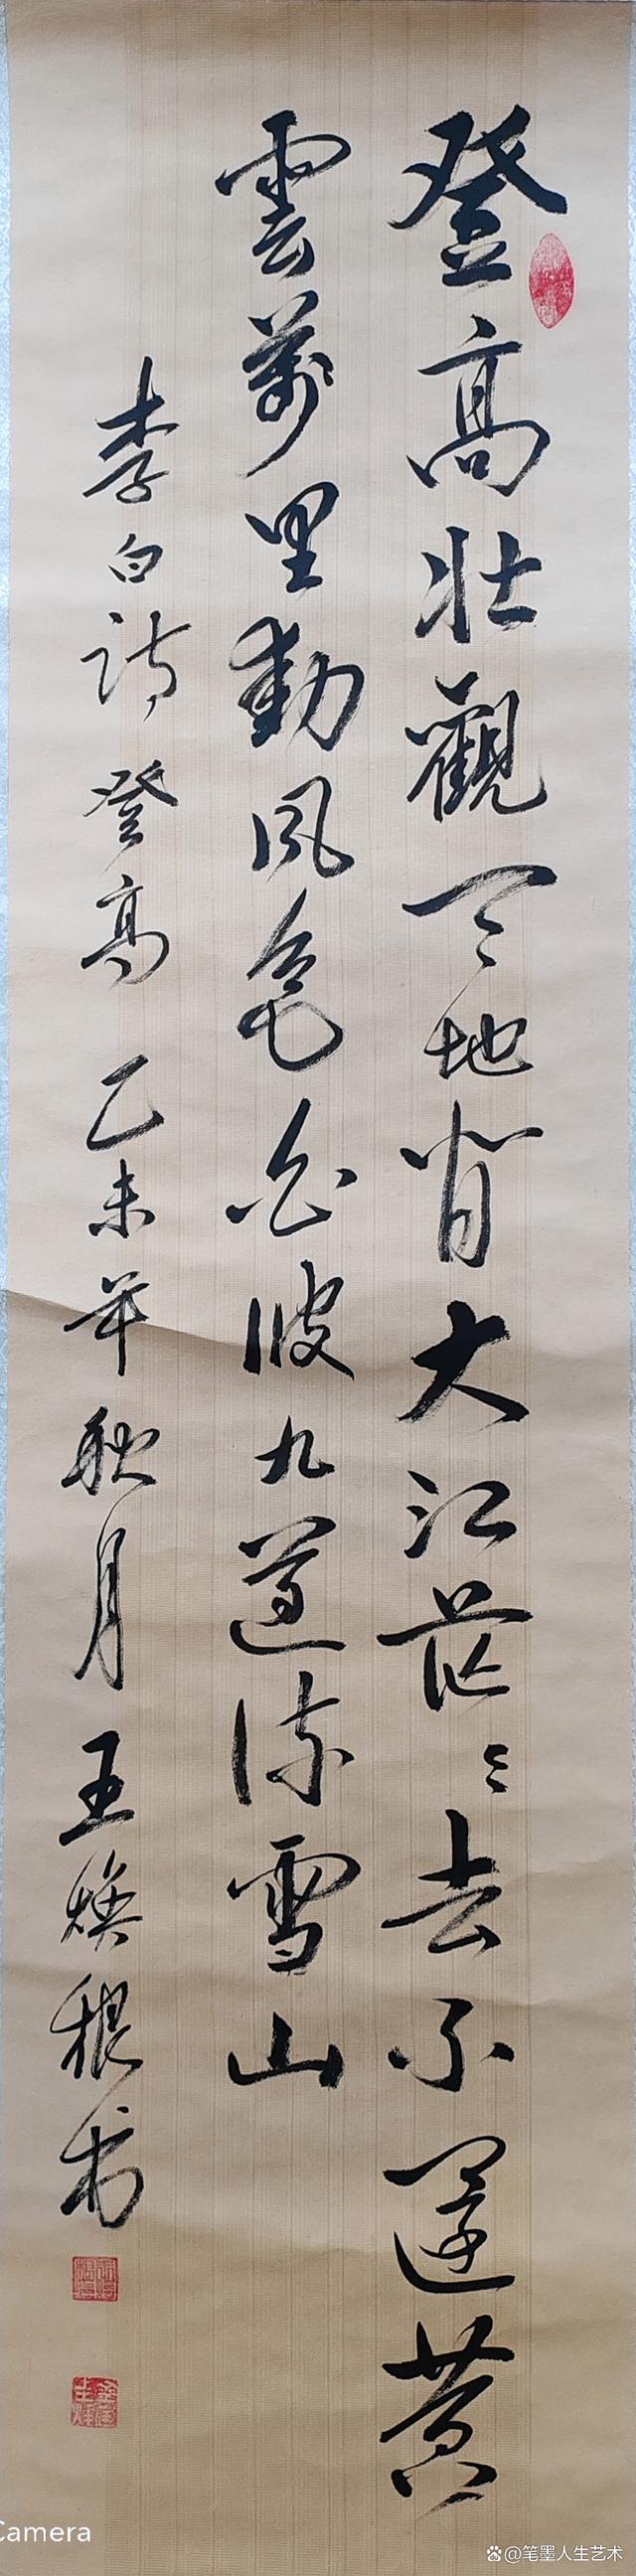 登高壮觀天地間大江茫〻去不還黄
雲萬里動風色白波九道流雪山
李白詩登高 乙未年秋月 王焕根书
Camera
@笔墨人生艺术